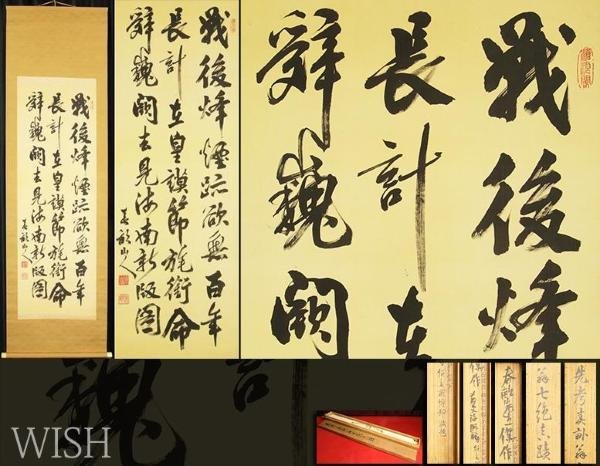 戰後烽煙跡欲無百年
長計在皇謨節旄銜命
辭巍闕去見海南新版圖
春畝山人
戰後烽煙跡欲無百年
長計在皇謨節旄銜命
辭巍闕去見海南新版圖
春畝山人
戰後烽
長計在
辭巍闕
巍
計
翁七絶真蹟
傑作
WISH